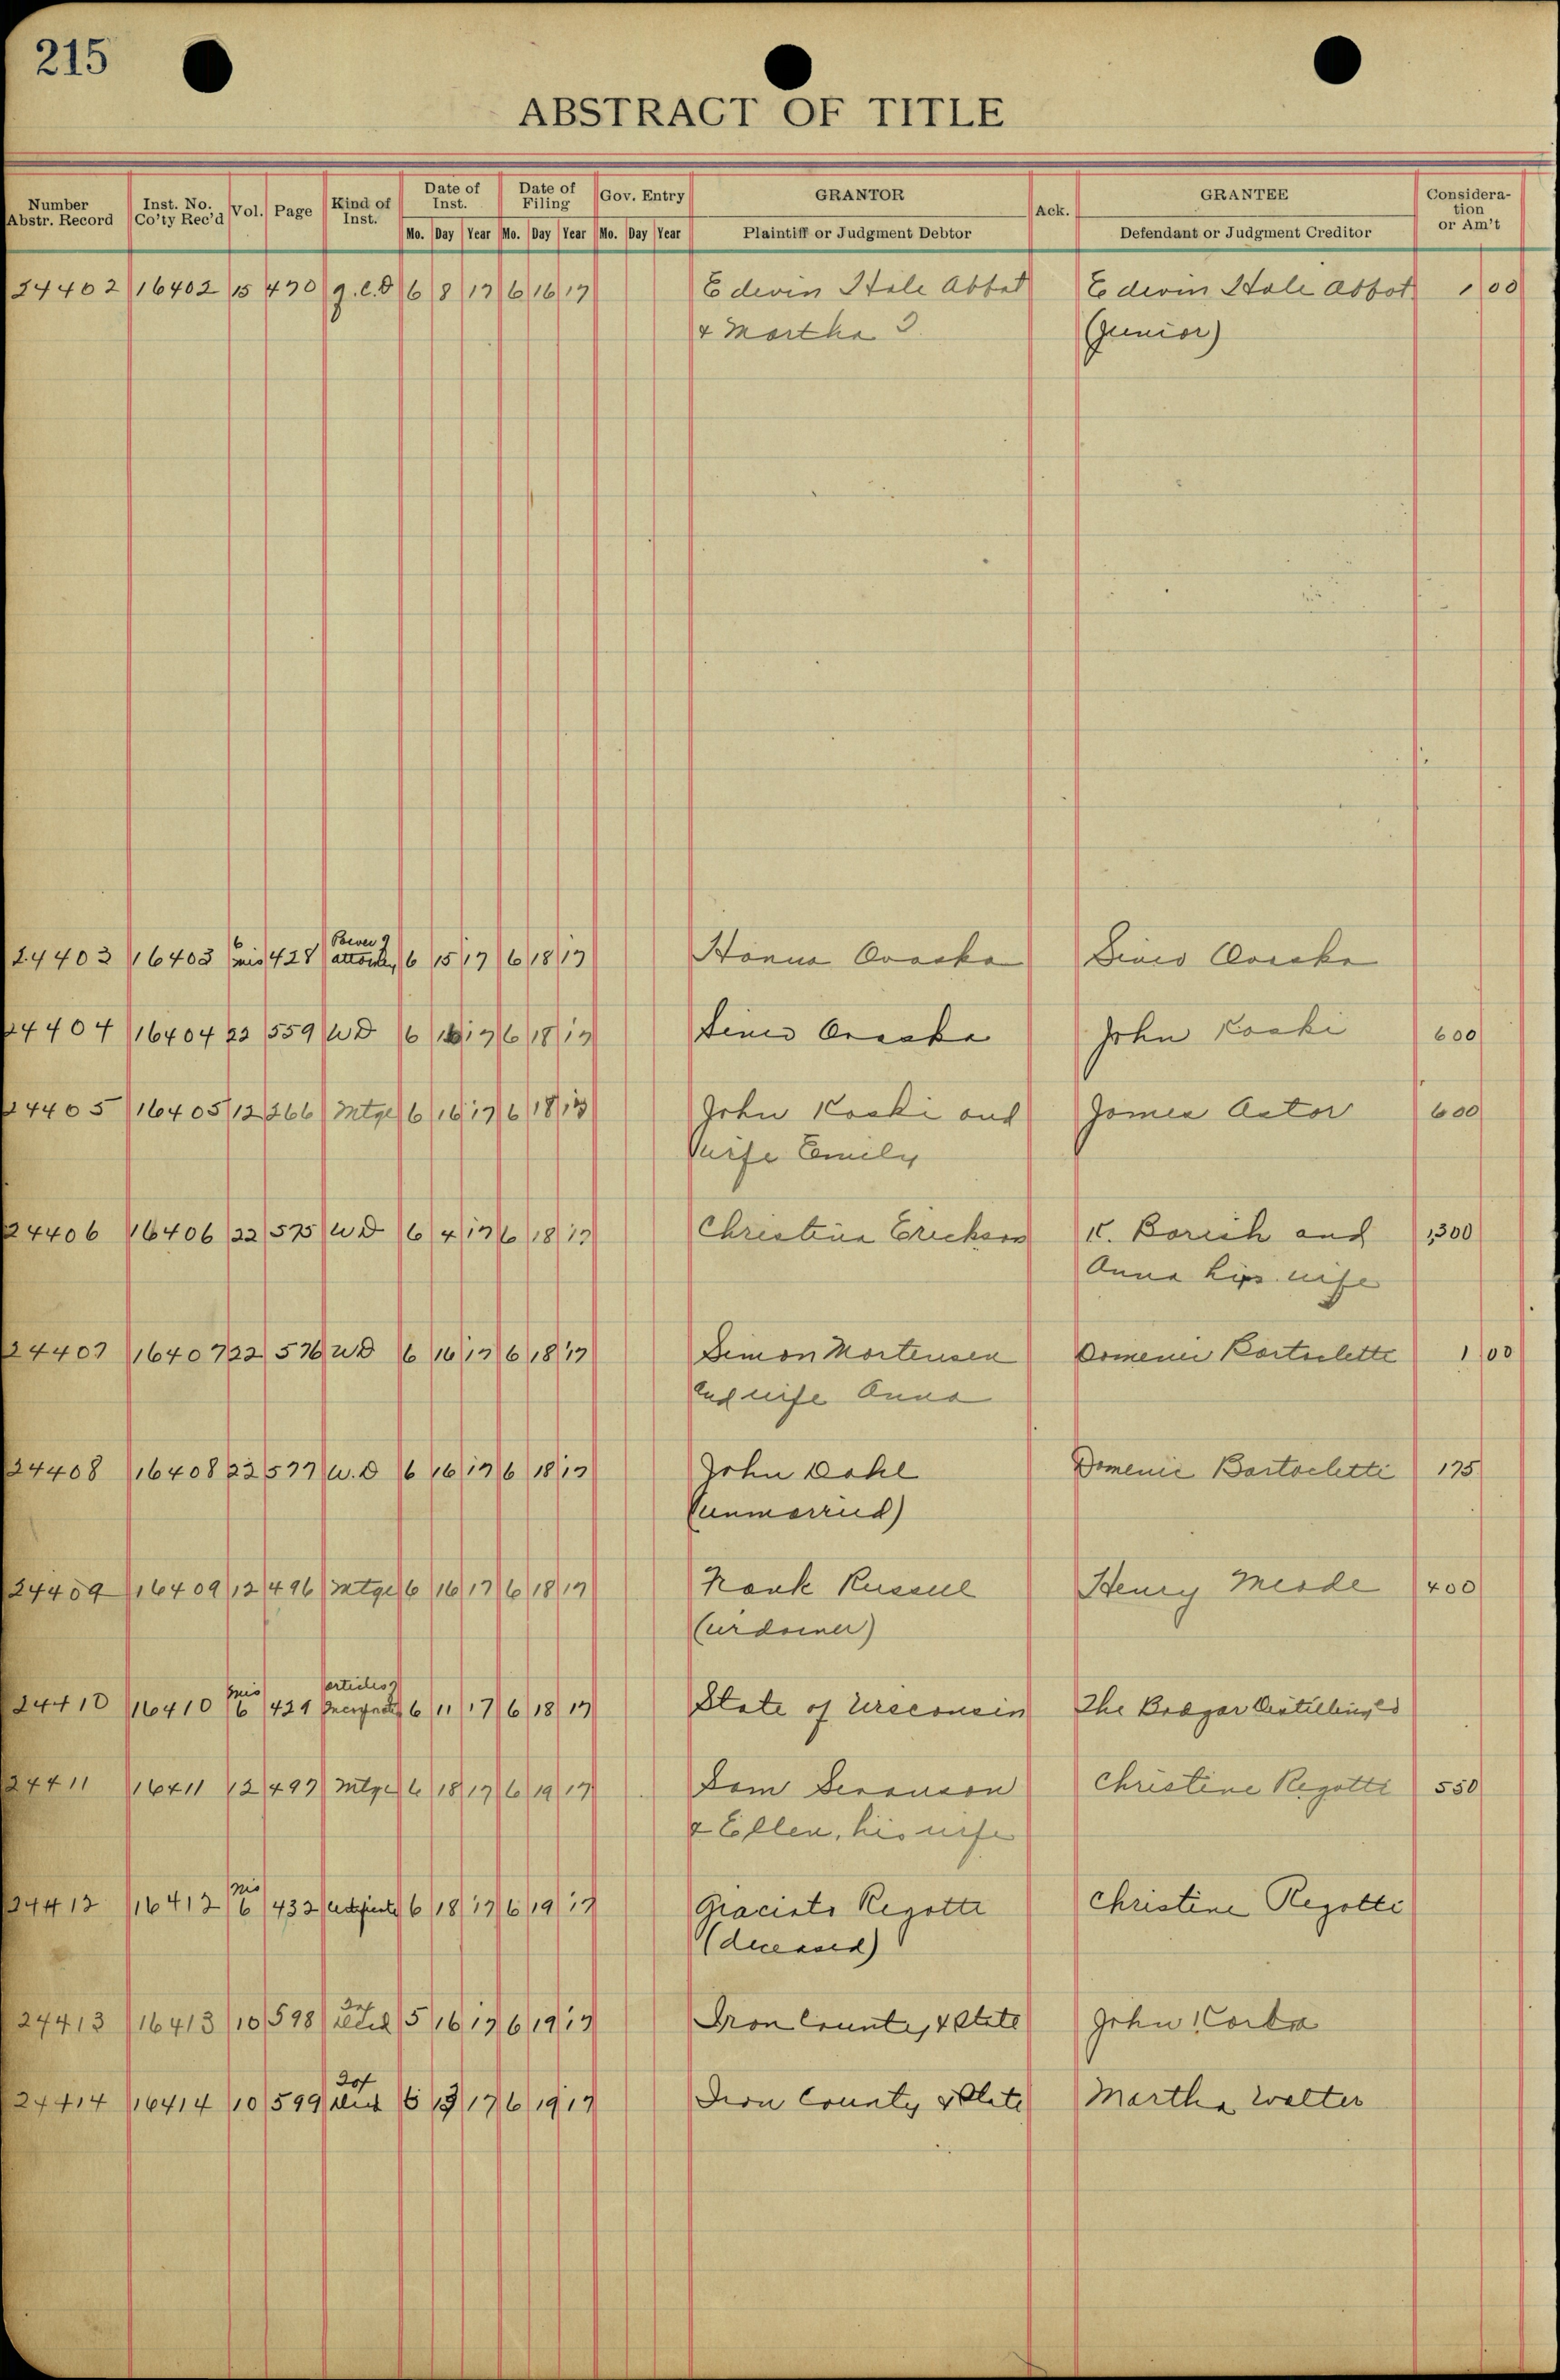 215
ABSTRACT OF TITLE
Number Abstr. Record Inst. No. Co'ty Rec'd Vol. Page Kind of Inst. Date of Inst. Date of Filing Gov. Entry GRANTOR Ack. GRANTEE Consideration or Am't
Mo. Day Year Mo. Day Year Mo. Day Year Plaintiff or Judgment Debtor Defendant or Judgment Creditor
24402 16402 15 470 q.c.D 6 8 17 6 16 17 Edwin Hale Abbot Edwin Hale Abbot 1 00
& Martha (junior)
24403 16403 6 mis 428 Power of attorney 6 15 17 6 18 17
24404 16404 22 559 WD 6 16 17 6 18 17 John Koski 600
24405 16405 12 266 Mtge 6 16 17 6 18 17 John Koski and James Astor 600
Wife Emily
24406 16406 22 575 WD 6 4 17 6 18 17 Christina Erickson K. Borich and 1,300
Anna his wife
24407 16407 22 576 WD 6 16 17 6 18 17 Simon Mortensen 1 00
and wife Anna
24408 16408 22 577 W.D 6 16 17 6 18 17 John Dahl Domenic Bartoletti 175
(unmarried)
24409 16409 12 496 Mtge 6 16 17 6 18 17 Frank Russell Henry Meade 400
(widower)
24410 16410 mis 6 429 articles of 6 11 17 6 18 17 State of Wisconsin The
24411 16411 12 497 Mtge 6 18 17 6 19 17 Sam Swanson Christine Regotti 550
& Ellen, his wife
24412 16412 mis 6 432 certificate 6 18 17 6 19 17 Giacinto Regotti Christine Regotti
(deceased)
24413 16413 10 598 5 16 17 6 19 17 Iron County & State John
24414 16414 10 599 17 6 19 17 Iron County & State Martha Walter